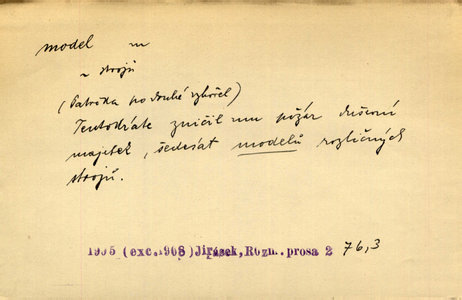 model m
~ strojů
(Patrčka po druhé vyhořel)
Tentokráte zničil mu požár duševní
majetek, šedesát modelů rozličných
strojů.
1995 (exc.1968) Jirásek, Rozm. prosa 2 76,3